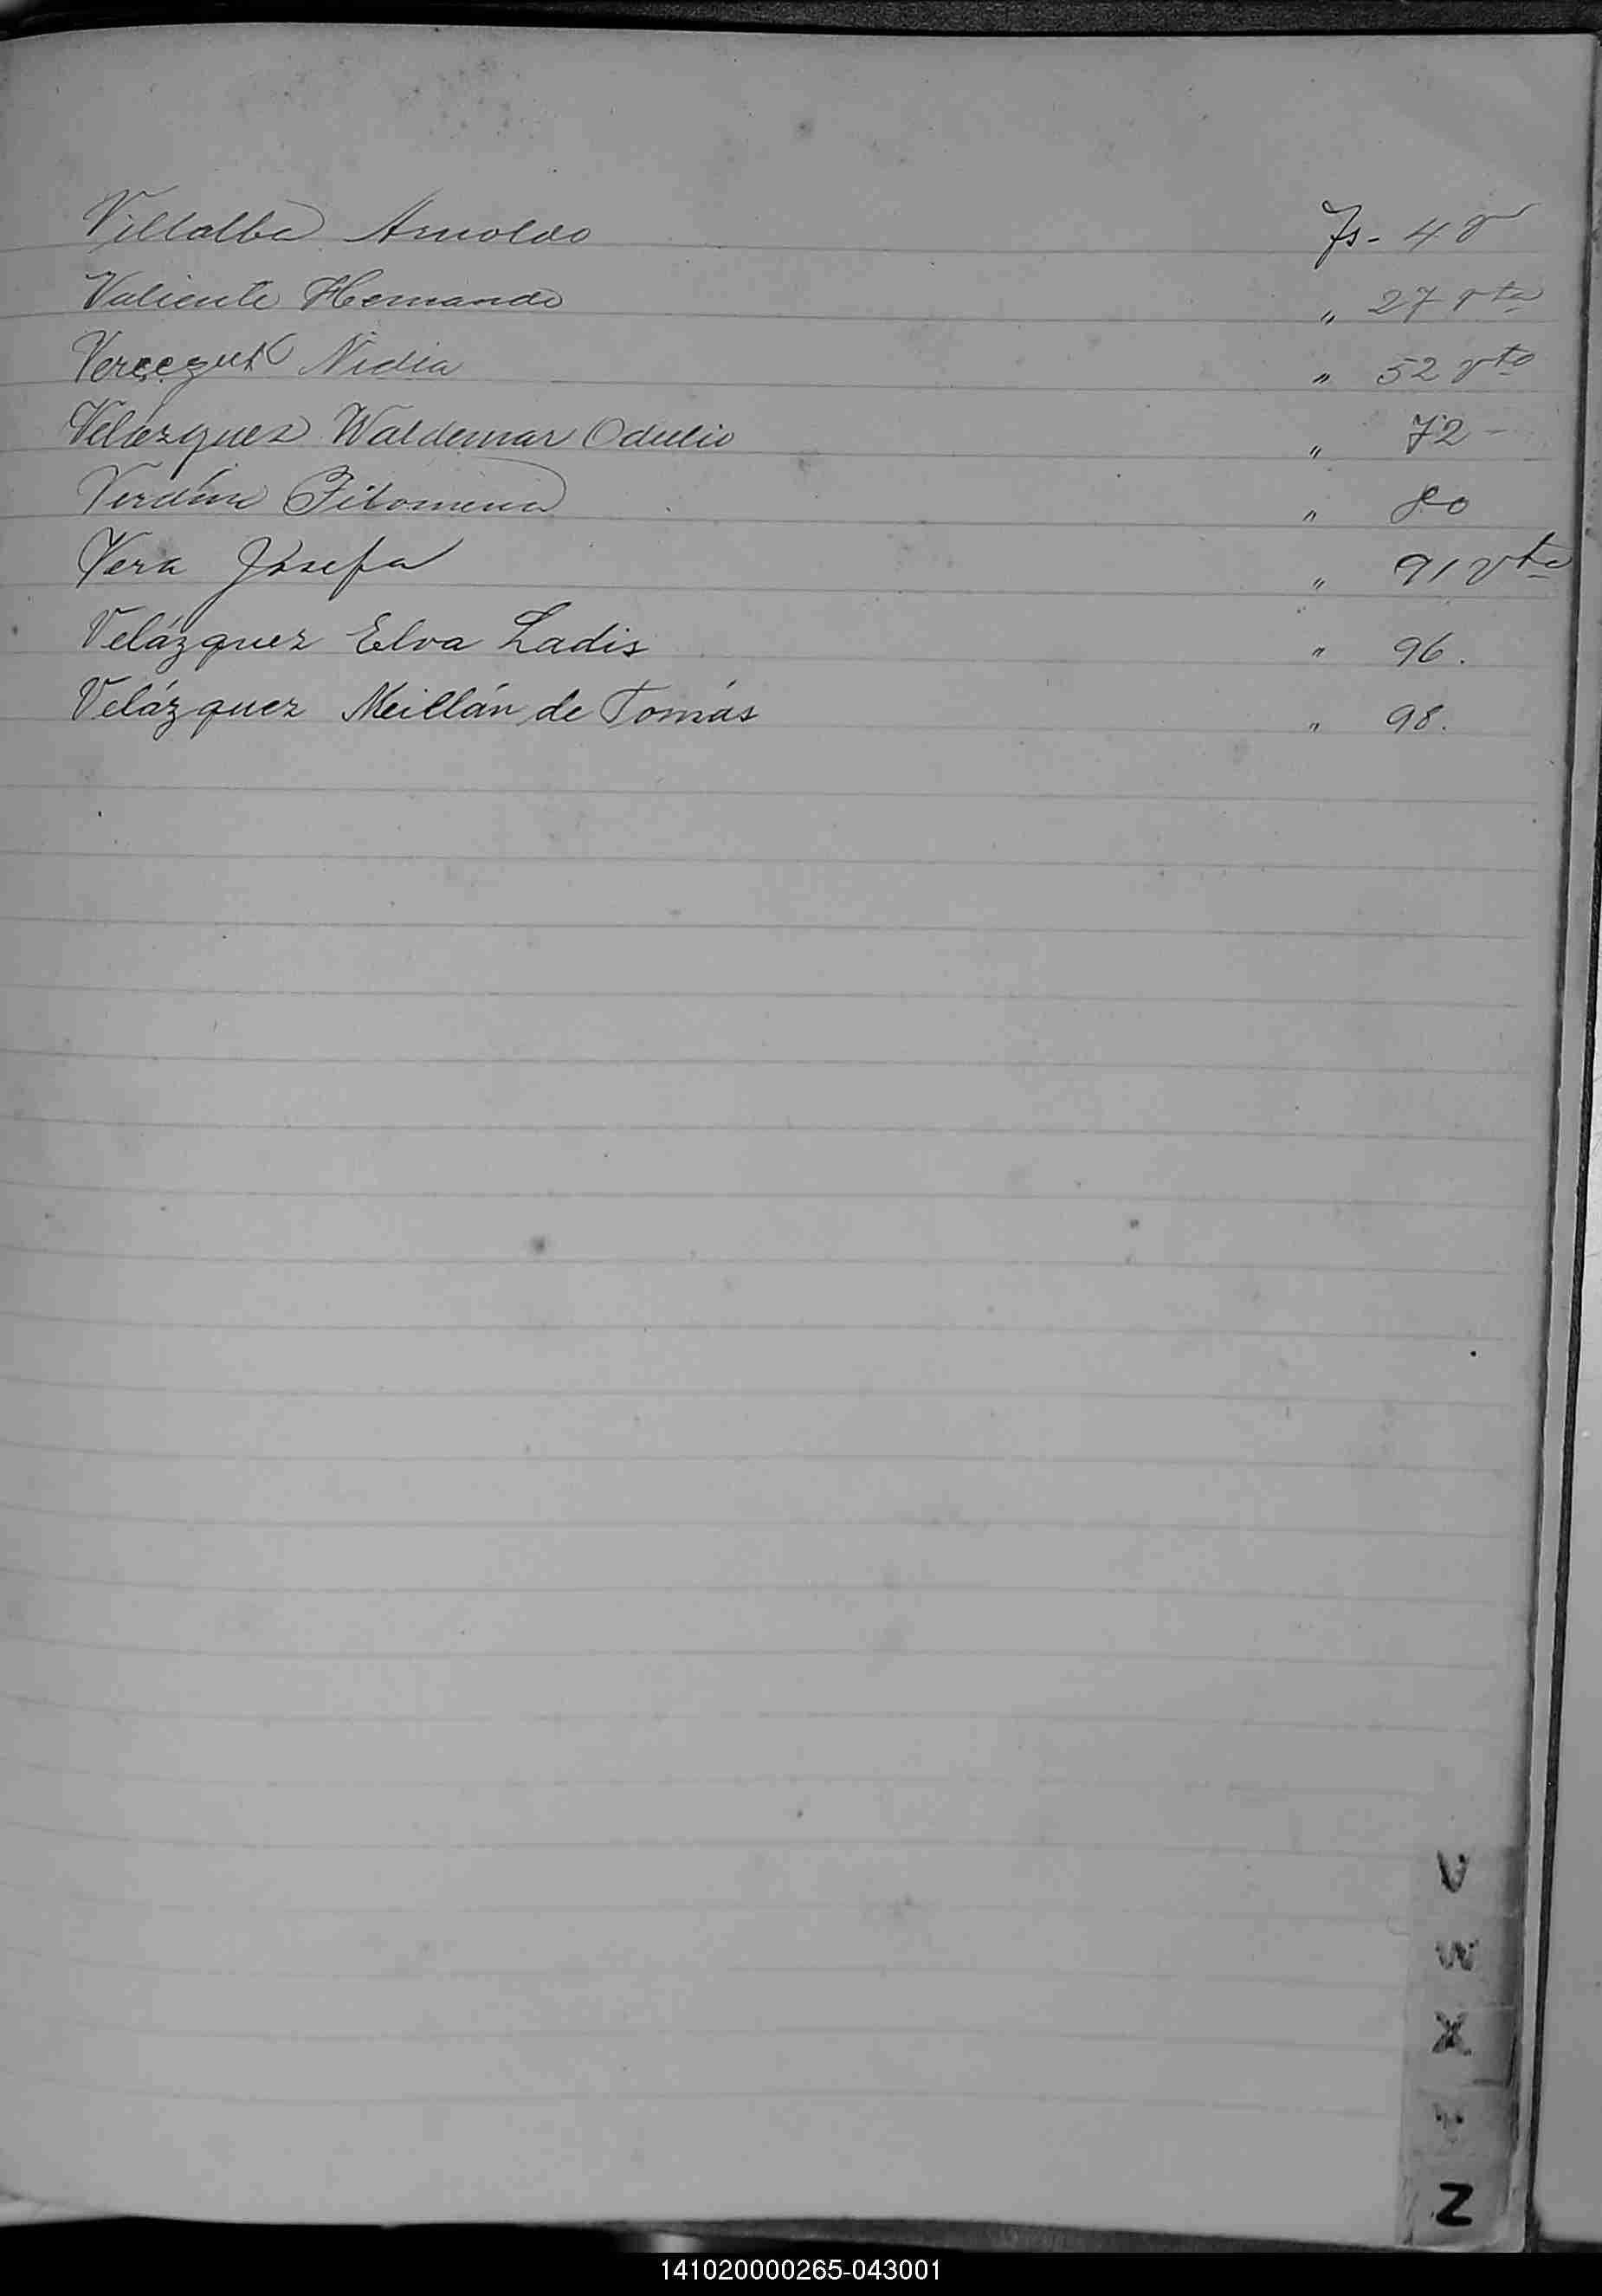 Villalba Arnoldo Fs - 4 v
Valiente Hernando " 27 vta
Nidia " 52 vta
Velázquez Waldemar Odulio " 72 -
Verdún Filomena " 80
Vera Josefa " 91 vta
Velázquez Elva Ladis " 96.
Velázquez Meillán de Tomás " 98.
V
W
X
Y
Z
141020000265-043001